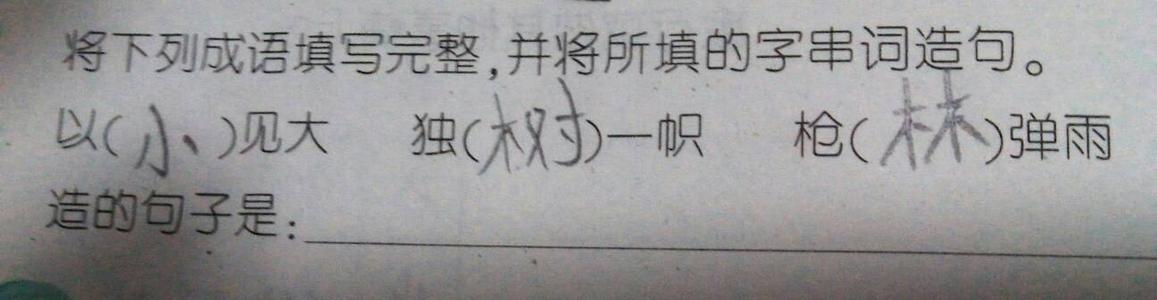 将下列成语填写完整,并将所填的字串词造句。
以(小)见大 独(树)一帜 枪(林)弹雨
造的句子是: